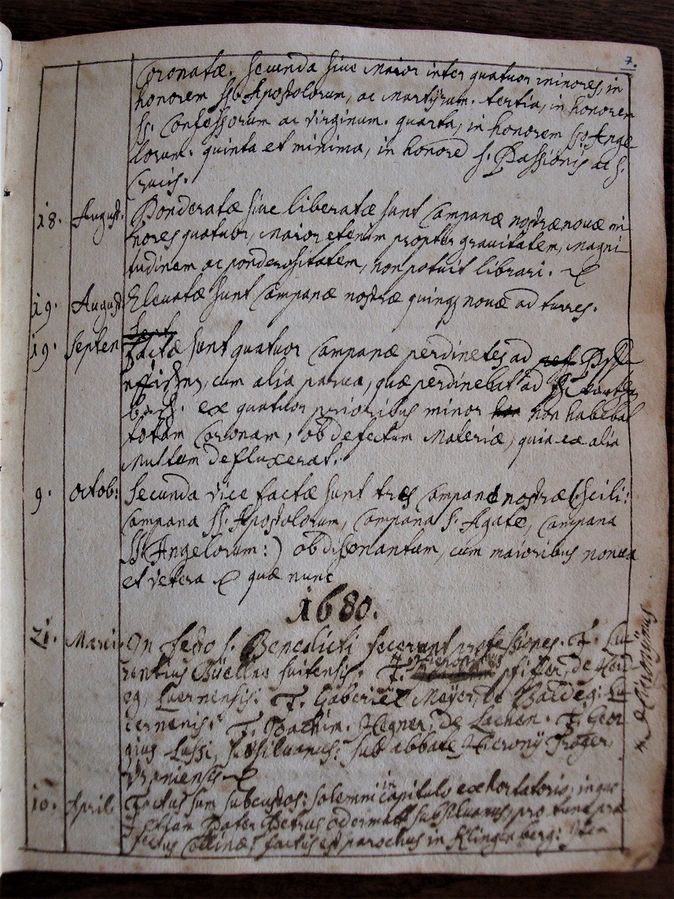 7.
Coronatæ. Secunda sive maior inter quatuor minores, in
honorem SS. Apostolorum, ac Martyrum. tertia, in honorem
SS. Confessorum ac Virginum. quarta, in honorem SS. Ange
lorum. quinta et minima, in honorē S. Passionis ac S.
Crucis.
18. August. Ponderatæ sive liberatæ sunt Campanæ nostræ novæ mi
nores quatuor, maior etenim propter gravitatem, magni
tudinem ac ponderositatem, non potuit librari.
19. August Elevatæ sunt Campanæ nostræ quinq; novæ ad turres.
19. Septem factæ sunt quatuor Campanæ pertinētes ad
cum alia parva, quæ pertinebat ad
ex quatuor prioribus minor non habebat
totam Coronam, ob defectum Materiæ, quia ex alia
multum defluxerat.
9. Octob: Secunda vice factæ sunt tres Campanæ nostræ (scili:
Campana SS. Apostolorum, Campana S. Agatæ, Campana
SS Angelorum:) ob disonantiam, cum maioribus nova
et vetera quæ nunc
1680.
21. Marti In festo S. Benedicti fecerunt professiones. F. Lau
rentius Büellius Suitensis. F. Hieronymus Pfiffer, de
Lucernensis. F. Gabriël Meyer, de Baldeg. Lu
cernensis. F. Joachim. Hegner, de Lachen. F. Geor
gius Lussi, subsilvanus. sub abbate Hieronÿ Troger
Uraniensis
10. April. Factus sum subcustos: solemni in capitulo exhortatorio, in quo
etiam Pater Petrus Odermatt subsilvanus pro tunc præ
fectus factus est parochus in Klingenberg.
Hieronÿmus